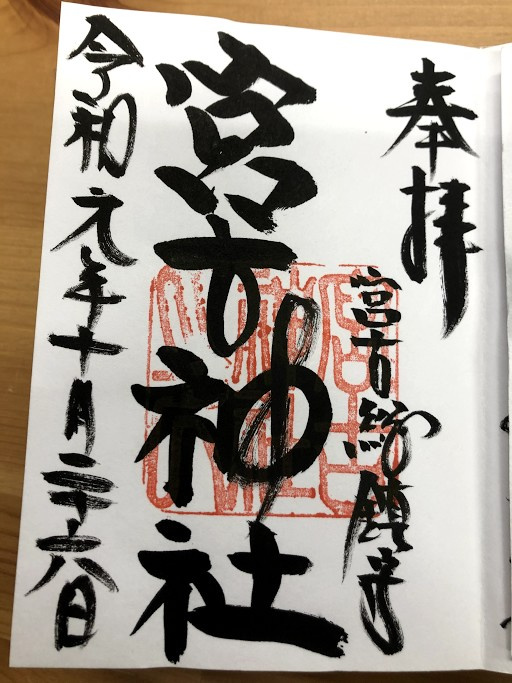 奉拝
宮古総鎮守
宮古神社
令和元年十月二十六日